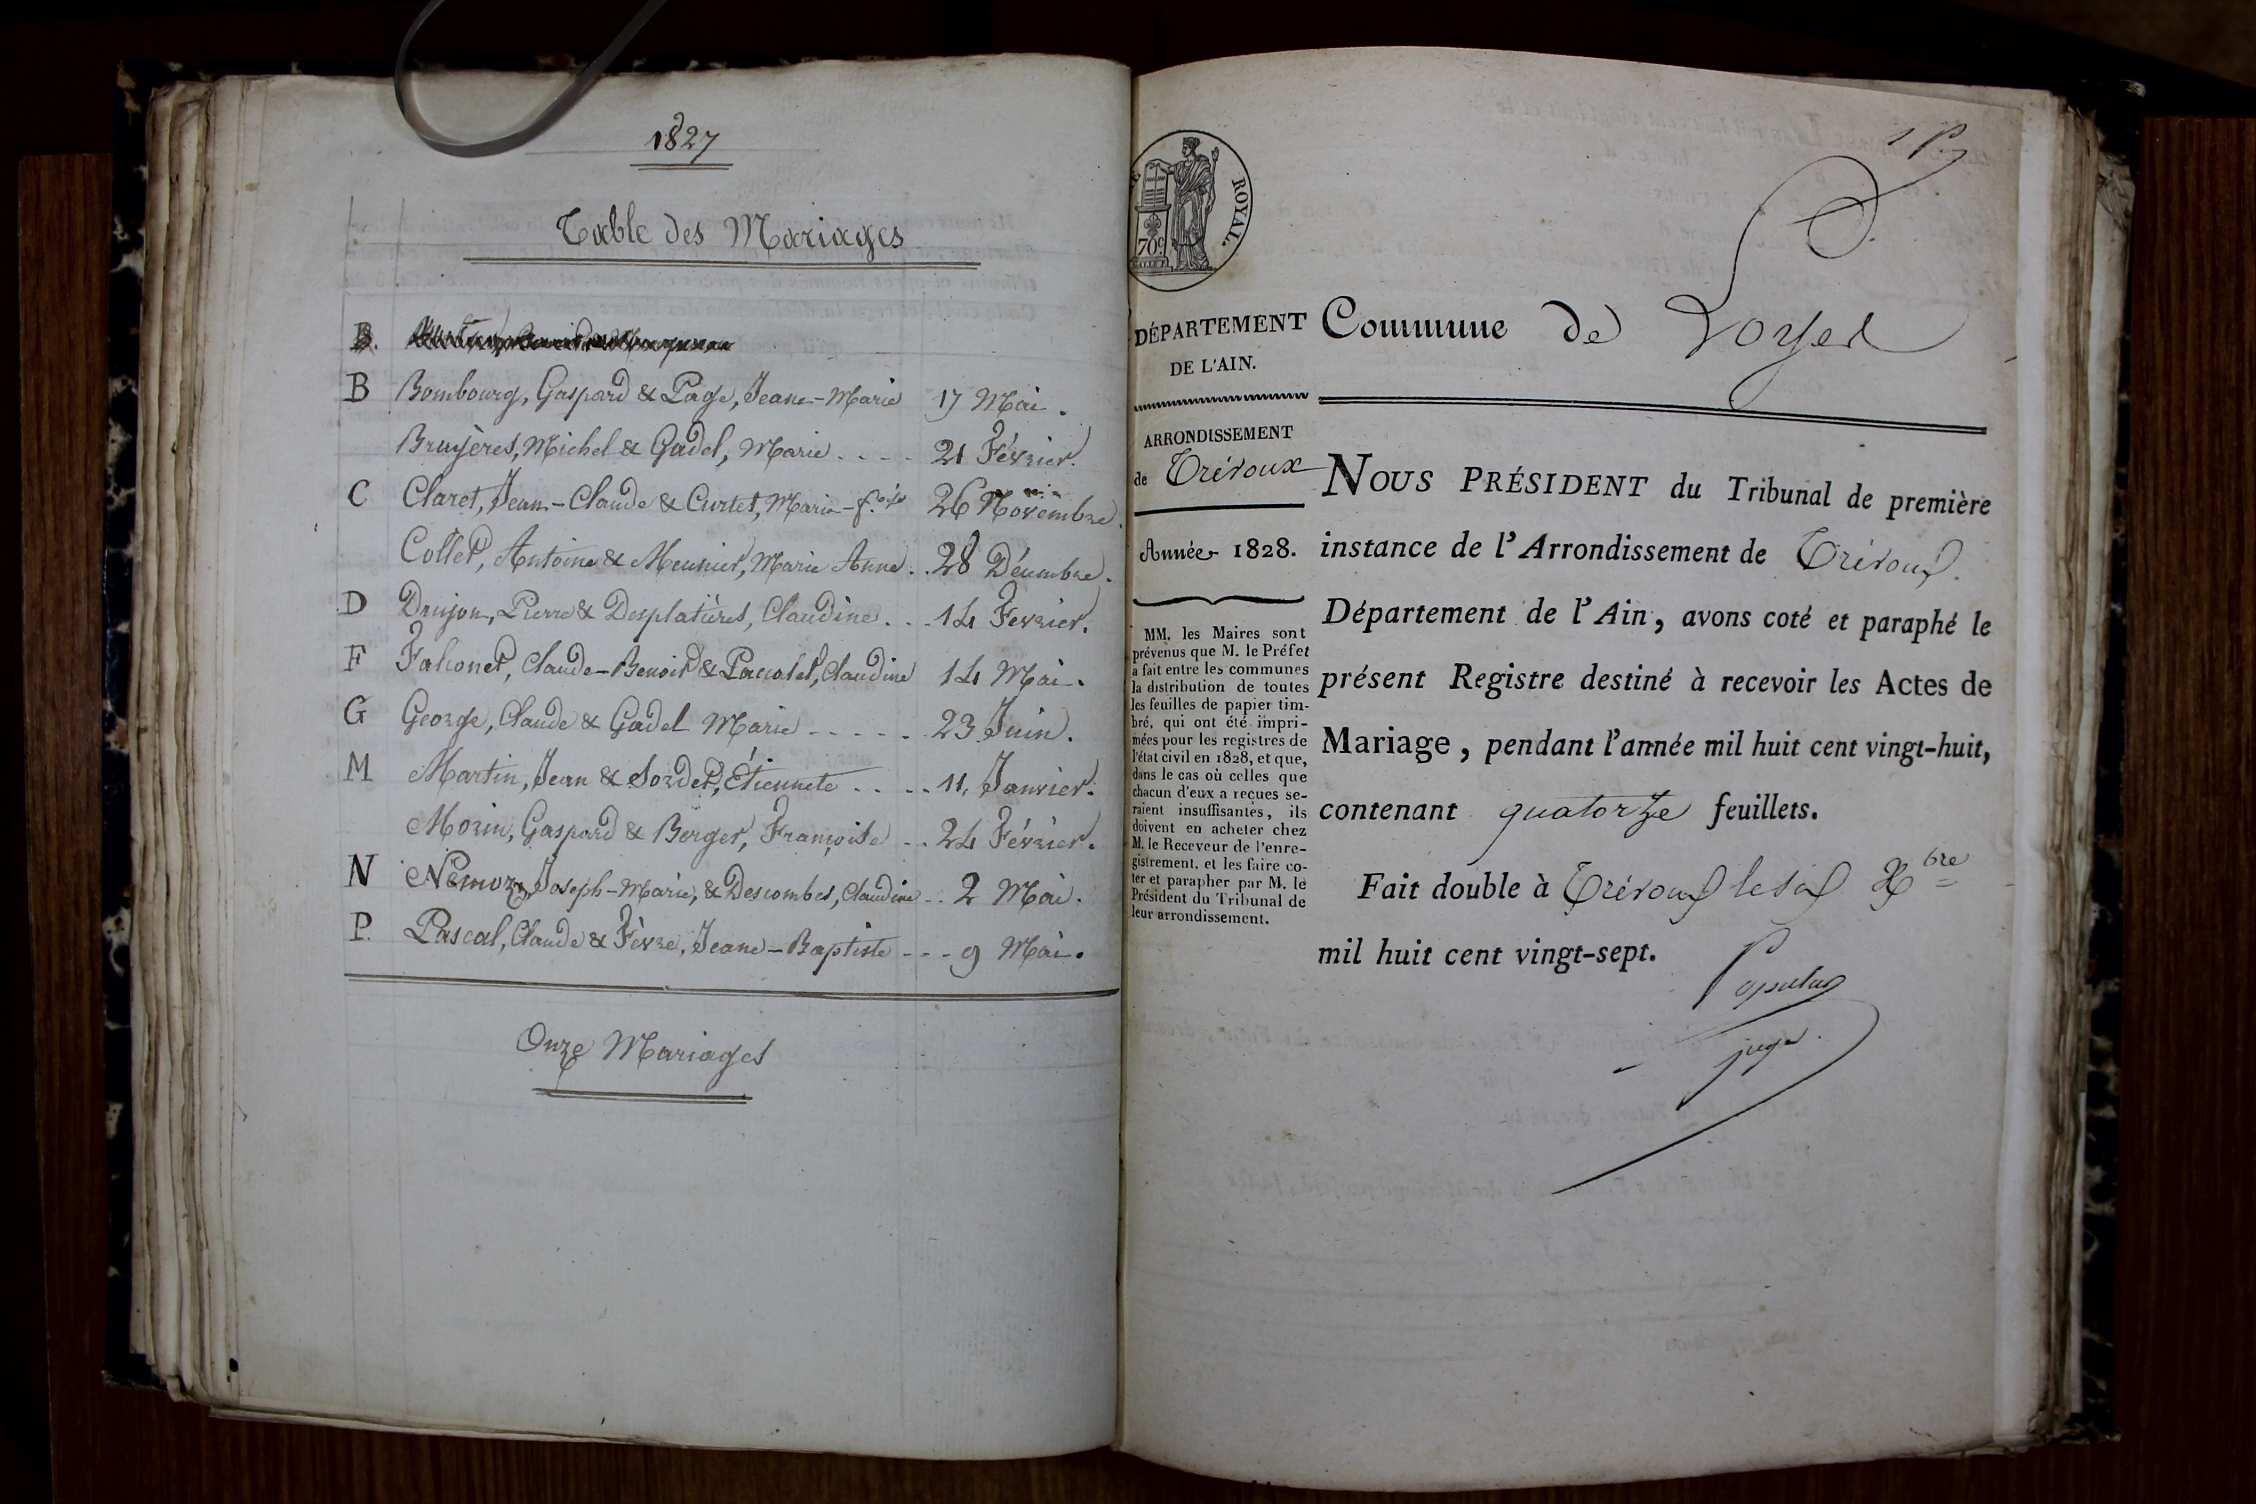 1827
Table des Mariages
B.
B Bombourg, Gaspard & Page, Jeane-Marie 17 Mai.
Bruyères, Michel & Gadel, Marie .... 21 Février.
C Claret, Jean-Claude & Curtet, Marie-f.oise 26 Novembre.
Collet, Antoine & Meunier, Marie Anne.. 28 Décembre.
D Drujon, Pierre & Desplatières, Claudine... 14 Fevrier.
F Falconet, Claude-Benoit & Pacalet, Claudine 14 Mai.
G George, Claude & Gadel Marie ..... 23 Juin.
M Martin, Jean & Sordet, Étiennete .... 11, Janvier.
Morin, Gaspard & Berger, Françoise .. 24 Février.
N Némoz, Joseph-Marie, & Descombes, Claudine .. 2 Mai.
P. Pascal, Claude & Fèvre, Jeane-Baptiste --- 9 Mai.
Onze Mariages
ROYAL.
70c.
DÉPARTEMENT
DE L'AIN.
ARRONDISSEMENT
de Trévoux
Année 1828.
MM. les Maires sont
prévenus que M. le Préfet
a fait entre les communes
la distribution de toutes
les feuilles de papier tim-
bré, qui ont été impri-
mées pour les registres de
l'état civil en 1828, et que,
dans le cas où celles que
chacun d'eux a reçues se-
raient insuffisantes, ils
doivent en acheter chez
M. le Receveur de l'enre-
gistrement, et les faire co-
ter et parapher par M. le
Président du Tribunal de
leur arrondissement.
Commune de Loyes
NOUS PRÉSIDENT du Tribunal de première
instance de l'Arrondissement de Trévoux.
Département de l'Ain, avons coté et paraphé le
présent Registre destiné à recevoir les Actes de
Mariage, pendant l'année mil huit cent vingt-huit,
contenant quatorze feuillets.
Fait double à Trévoux le six Xbre
mil huit cent vingt-sept.
juge.